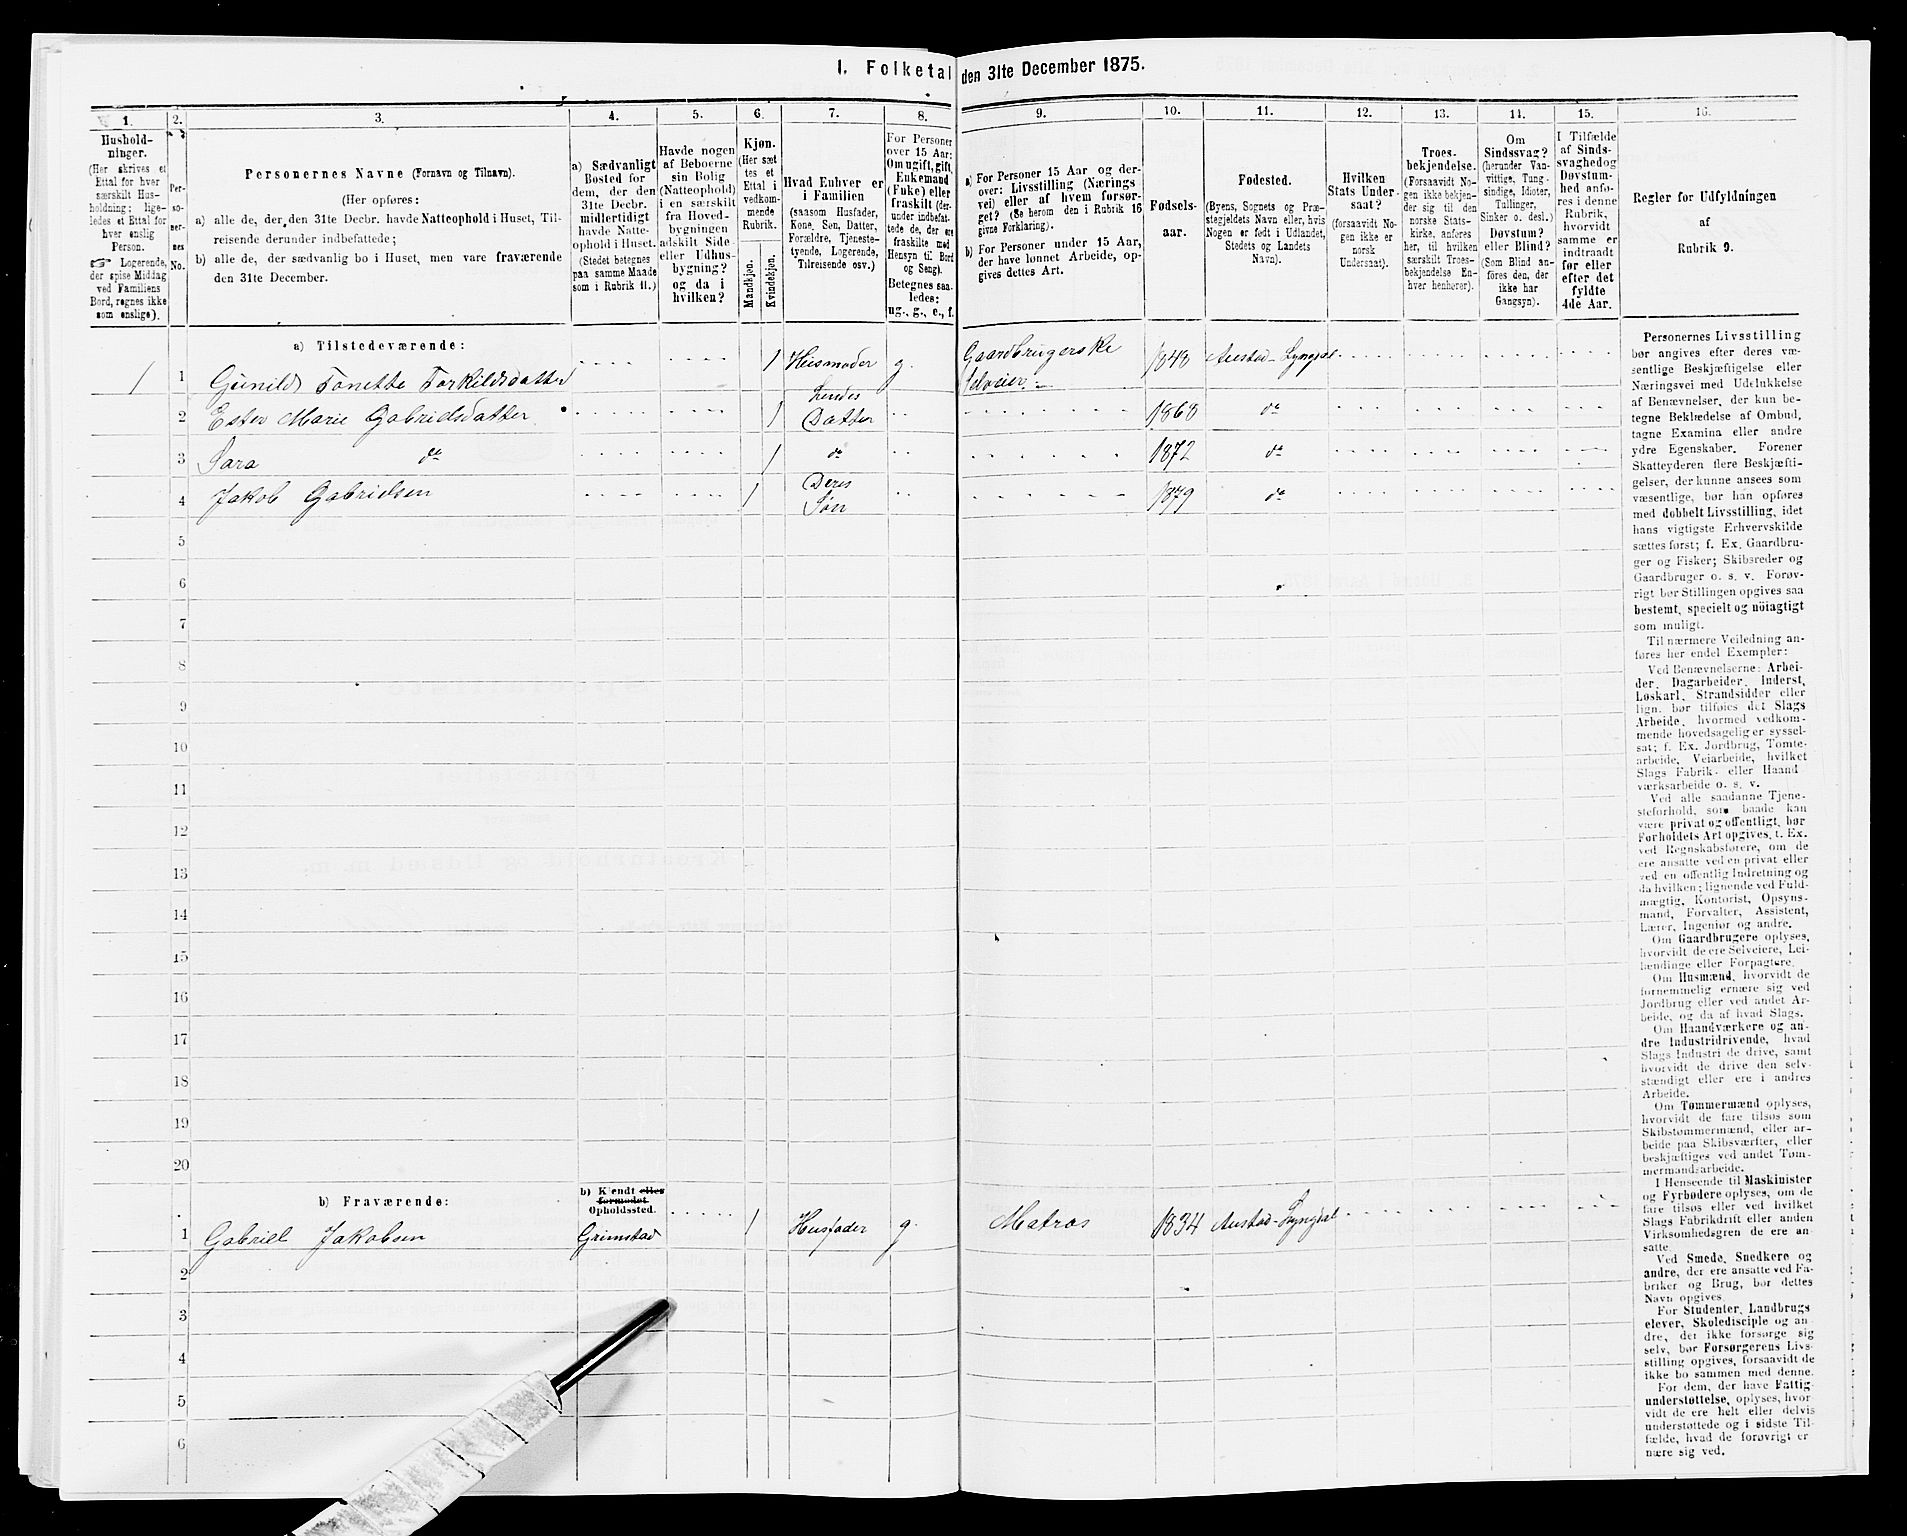 I. Folketal den 31te December 1875.
1.
2.
3.
4.
5.
6.
7.
8.
9.
10.
11.
12.
13.
14.
15.
16.
Hushold-
ninger.
(Her skrives et
Ettal for hver
særskilt Hus-
holdning; lige-
ledes et Ettal for
hver enslig
Person.
☞ Logerende,
der spise Middag
ved Familiens
Bord, regnes ikke
som enslige).
Per-
so-
ner-
nes
No.
Personernes Navne (Fornavn og Tilnavn).
(Her opføres:
a) alle de, der den 31te Decbr. havde Natteophold i Huset, Til-
reisende derunder indbefattede;
b) alle de, der sædvanlig bo i Huset, men vare fraværende
den 31te December.
a) Sædvanligt
Bosted for
dem, der den
31te Decbr.
midlertidigt
havde Natte-
ophold i Huset.
(Stedet betegnes
paa samme Maade
som i Rubrik 11.)
Havde nogen
af Beboerne
sin Bolig
(Natteophold)
i en særskilt
fra Hoved-
bygningen
adskilt Side-
eller Udhus-
bygning?
og da i
hvilken?
Kjøn.
(Her sæt
tes et
Ettal i
vedkom-
mende
Rubrik.
Mandkjøn.
Kvindekjøn.
Hvad Enhver er
i Familien
(saasom Husfader,
Kone, Søn, Datter,
Forældre, Tjeneste-
tyende, Logerende,
Tilreisende osv.)
For Personer
over 15 Aar:
Om ugift, gift,
Enkemand
(Fuke) eller
fraskilt (der-
under indbefat-
tede de, der ere
fraskilte med
Hensyn til Bord
og Seng).
Betegnes saa-
ledes:
ug., g., e., f.
a) For Personer 15 Aar og der-
over: Livsstilling (Nærings
vei) eller af hvem forsør-
get? (Se herom den i Rubrik 16
givne Forklaring).
b) For Personer under 15 Aar,
der have lønnet Arbeide, op-
gives dettes Art.
Fødsels-
aar.
Fødested.
(Byens, Sognets og Præ-
stegjeldets Navn eller, hvis
Nogen er født i Udlandet,
Stedets og Landets
Navn).
Hvilken
Stats Under-
saat?
(forsaavidt No-
gen ikke er
norsk
Undersaat).
Troes-
bekjendelse.
(Forsaavidt No-
gen ikke bekjen-
der sig til den
norske Stats-
kirke, anføres
her, til hvilken
særskilt Troes-
bekjendelse En-
hver henhører).
Om
Sindssvag?
(herunder Van-
vittige, Tung-
sindige, Idioter,
Tullinger,
Sinker o. desl.)
Døvstum?
eller Blind?
(Som Blind an-
føres den, der
ikke har
Gangsyn).
I Tilfælde
af Sinds-
svaghedog
Døvstum-
hed anfø-
res i denne
Rubrik,
hvorvidt
samme er
indtraadt
før eller
efter det
fyldte
4de Aar.
Regler for Udfyldningen
af
Rubrik 9.
a) Tilstedeværende:
1 1 Gunild Tonette Torkildsdatter 1 Husmoder g. Gaardbrugerske
Selveier 1843 Austad-Lyngdal
2 Ester Marie Gabrielsdatter 1 hendes
Datter 1868 do
3 Sara do 1 do 1872 do
4 Jakob Gabrielsen 1 Deres
Søn 1879 do
5
6
7
8
9
10
11
12
13
14
15
16
17
18
19
20
b) Fraværende:
b) Kjendt eller
formodet
Opholdssted.
1 Gabriel Jakobsen Grimstad 1 Husfader g. Matros 1834 Austad-Lyngdal
2
3
4
5
6
Personernes Livsstilling
bør angives efter deres væ-
sentlige Beskjæftigelse eller
Næringsvei med Udelukkelse
af Benævnelser, der kun be-
tegne Beklædelse af Ombud,
tagne Examina eller andre
ydre Egenskaber. Forener
Skatteyderen flere Beskjæfti-
gelser, der kunne ansees som
væsentlige, bør han opføres
med dobbelt Livsstilling, idet
hans vigtigste Erhvervskilde
sættes først; f. Ex. Gaardbru-
ger og Fisker; Skibsreder og
Gaardbruger o. s. v. Forøv-
rigt bør Stillingen opgives saa
bestemt, specielt og nöiagtigt
som muligt.
Til nærmere Veiledning an-
føres her endel Exempler:
Ved Benævnelserne: Arbei-
der, Dagarbeider, Inderst,
Løskarl, Strandsidder eller
lign. bør tilføies det Slags
Arbeide, hvormed vedkom-
mende hovedsagelig er syssel-
sat; f. Ex. Jordbrug, Tomte-
arbeide, Veiarbeide, hvilket
Slags Fabrik- eller Haand
værksarbeide o. s. v.
Ved alle saadanne Tjene-
steforhold, som baade kan
være privat og offentligt, bør
Forholdets Art opgives, t. Ex.
ved Regnskabsførere, om de
ere ansatte ved en privat eller
ved en offentlig Indretning og
da hvilken; lignende ved Fuld-
mægtig, Kontorist, Opsyns-
mand, Forvalter, Assistent,
Lærer, Ingeniør og andre.
Om Gaardbrugere oplyses,
hvorvidt de ere Selveiere, Lei-
lændinge eller Forpagtere.
Om Husmænd, hvorvidt de
fornemmelig ernære sig ved
Jordbrug eller ved andet Ar-
beide, og da af hvad Slags.
Om Haandværkere og an-
dre Industridrivende, hvad
Slags Industri de drive, samt
hvorvidt de drive den selv-
stændigt eller ere i andres
Arbeide.
Om Tømmermænd oplyses,
hvorvidt de fare tilsøs som
Skibstømmermænd, eller ar-
beide paa Skibsværfter, eller
beskjæftiges ved andet Tøm-
mermandsarbeide.
I Henseende til Maskinister
og Fyrbødere oplyses, om de
fare tilsøs eller ved hvilket
Slags Fabrikdrift eller anden
Virksomhedsgren de ere an-
satte.
Ved Smede, Snedkere og
andre, der ere ansatte ved Fa-
briker og Brug, bør dettes
Navn opgives.
For Studenter, Landbrugs
elever, Skoledisciple og an-
dre, der ikke forsørge sig
selv, bør Forsørgerens Livs-
stilling opgives, forsaavidt de
ikke bo sammen med denne.
For dem, der have Fattig-
understøttelse, oplyses, hvor-
vidt de ere helt eller delvis
understøttede og i sidste Til-
fælde, hvad de forøvrigt er
nære sig ved.